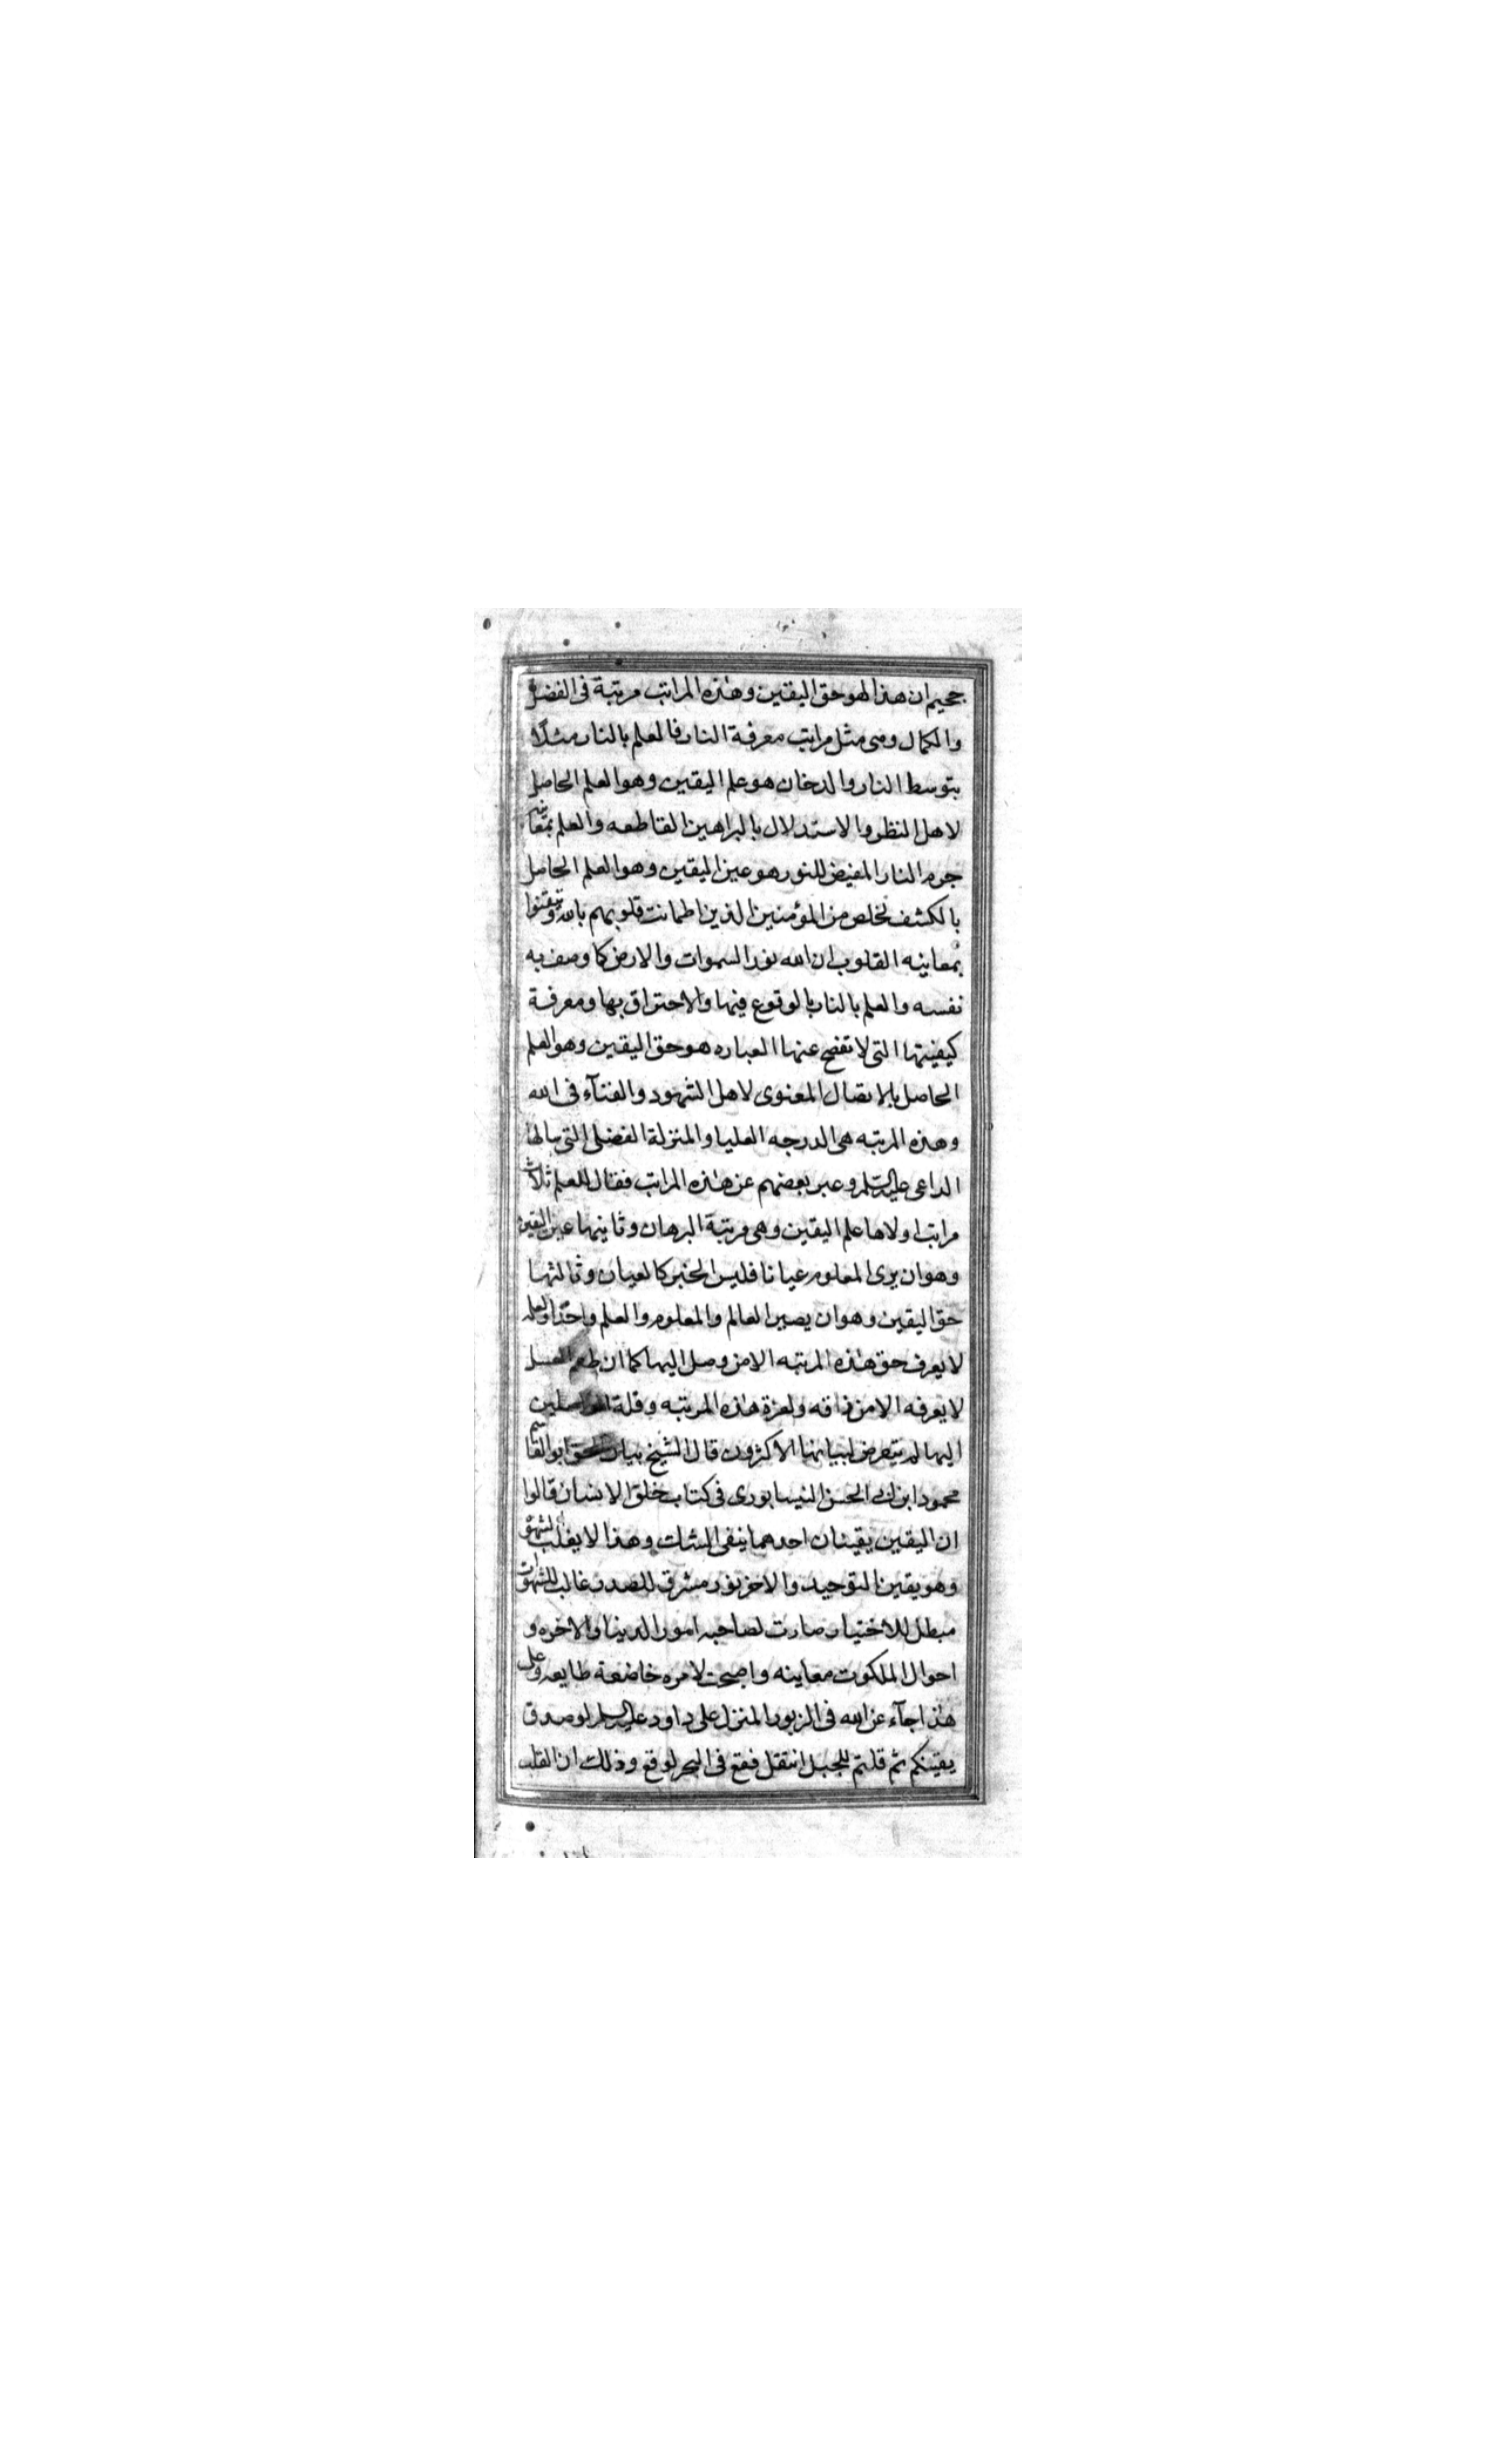 جحيم ان هذا لهو حق اليقين وهذه المراتب مرتبة فى الفضل
والكمال وهى مثل مراتب معرفة النار فالعلم بالنار مثلا
بتوسط النار والدخان هو علم اليقين وهو العلم الحاصل
لاهل النظر والاستدلال بالبراهين القاطعه والعلم بمعاينة
جرم النار المفيض للنور هو عين اليقين وهو العلم الحاصل
بالكشف لخلص من المؤمنين الذين اطمانت قلوبهم بالله وتيقنوا
بمعاينه القلوب ان الله نور السموات والارض كما وصف به
نفسه والعلم بالنار بالوقوع فيها والاحتراق بها ومعرفة
كيفيتها التى لا تفصح عنها العباره هو حق اليقين وهو العلم
الحاصل بالاتصال المعنوى لاهل الشهود والفنآء فى الله
وهذه المرتبه هى الدرجه العليا والمنزلة الفضلى التى سالها
الداعى عليه السلم وعبر بعضهم عن هذه المراتب فقال للعلم ثلاث
مراتب اولاها علم اليقين وهى مرتبة البرهان وثانيتها عين اليقين
وهو ان يرى المعلوم عيانا فليس الخبر كالعيان وثالثتها
حق اليقين وهو ان يصير العالم والمعلوم والعلم واحدا ولعله
لا يعرف حق هذه المرتبه الا من وصل اليها كما ان طعم العسل
لا يعرفه الا من ذاقه ولعزة هذه المرتبه وقلة الواصلين
اليها لم يتعرض لبيانها الاكثرون قال الشيخ بيان الحق ابو القاسم
محمود ابن ابى الحسن النيسابورى فى كتاب خلق الانسان قالوا
ان اليقين يقينان احدهما ينفى الشك وهذا لا يغلب الشهوة
وهو يقين التوحيد والاخر نور مشرق للصدر غالب للشهوات
مبطل للاختيار صارت لصاحبه امور الدنيا والاخره و
احوال الملكوت معاينه واصبحت لامره خاضعة طايعه وعلى
هذا جآء عن الله فى الزبور المنزل على داود عليه السلم لو صدق
يقينكم ثم قلتم للجبل انتقل فقع فى البحر لوقع وذلك ان القلب